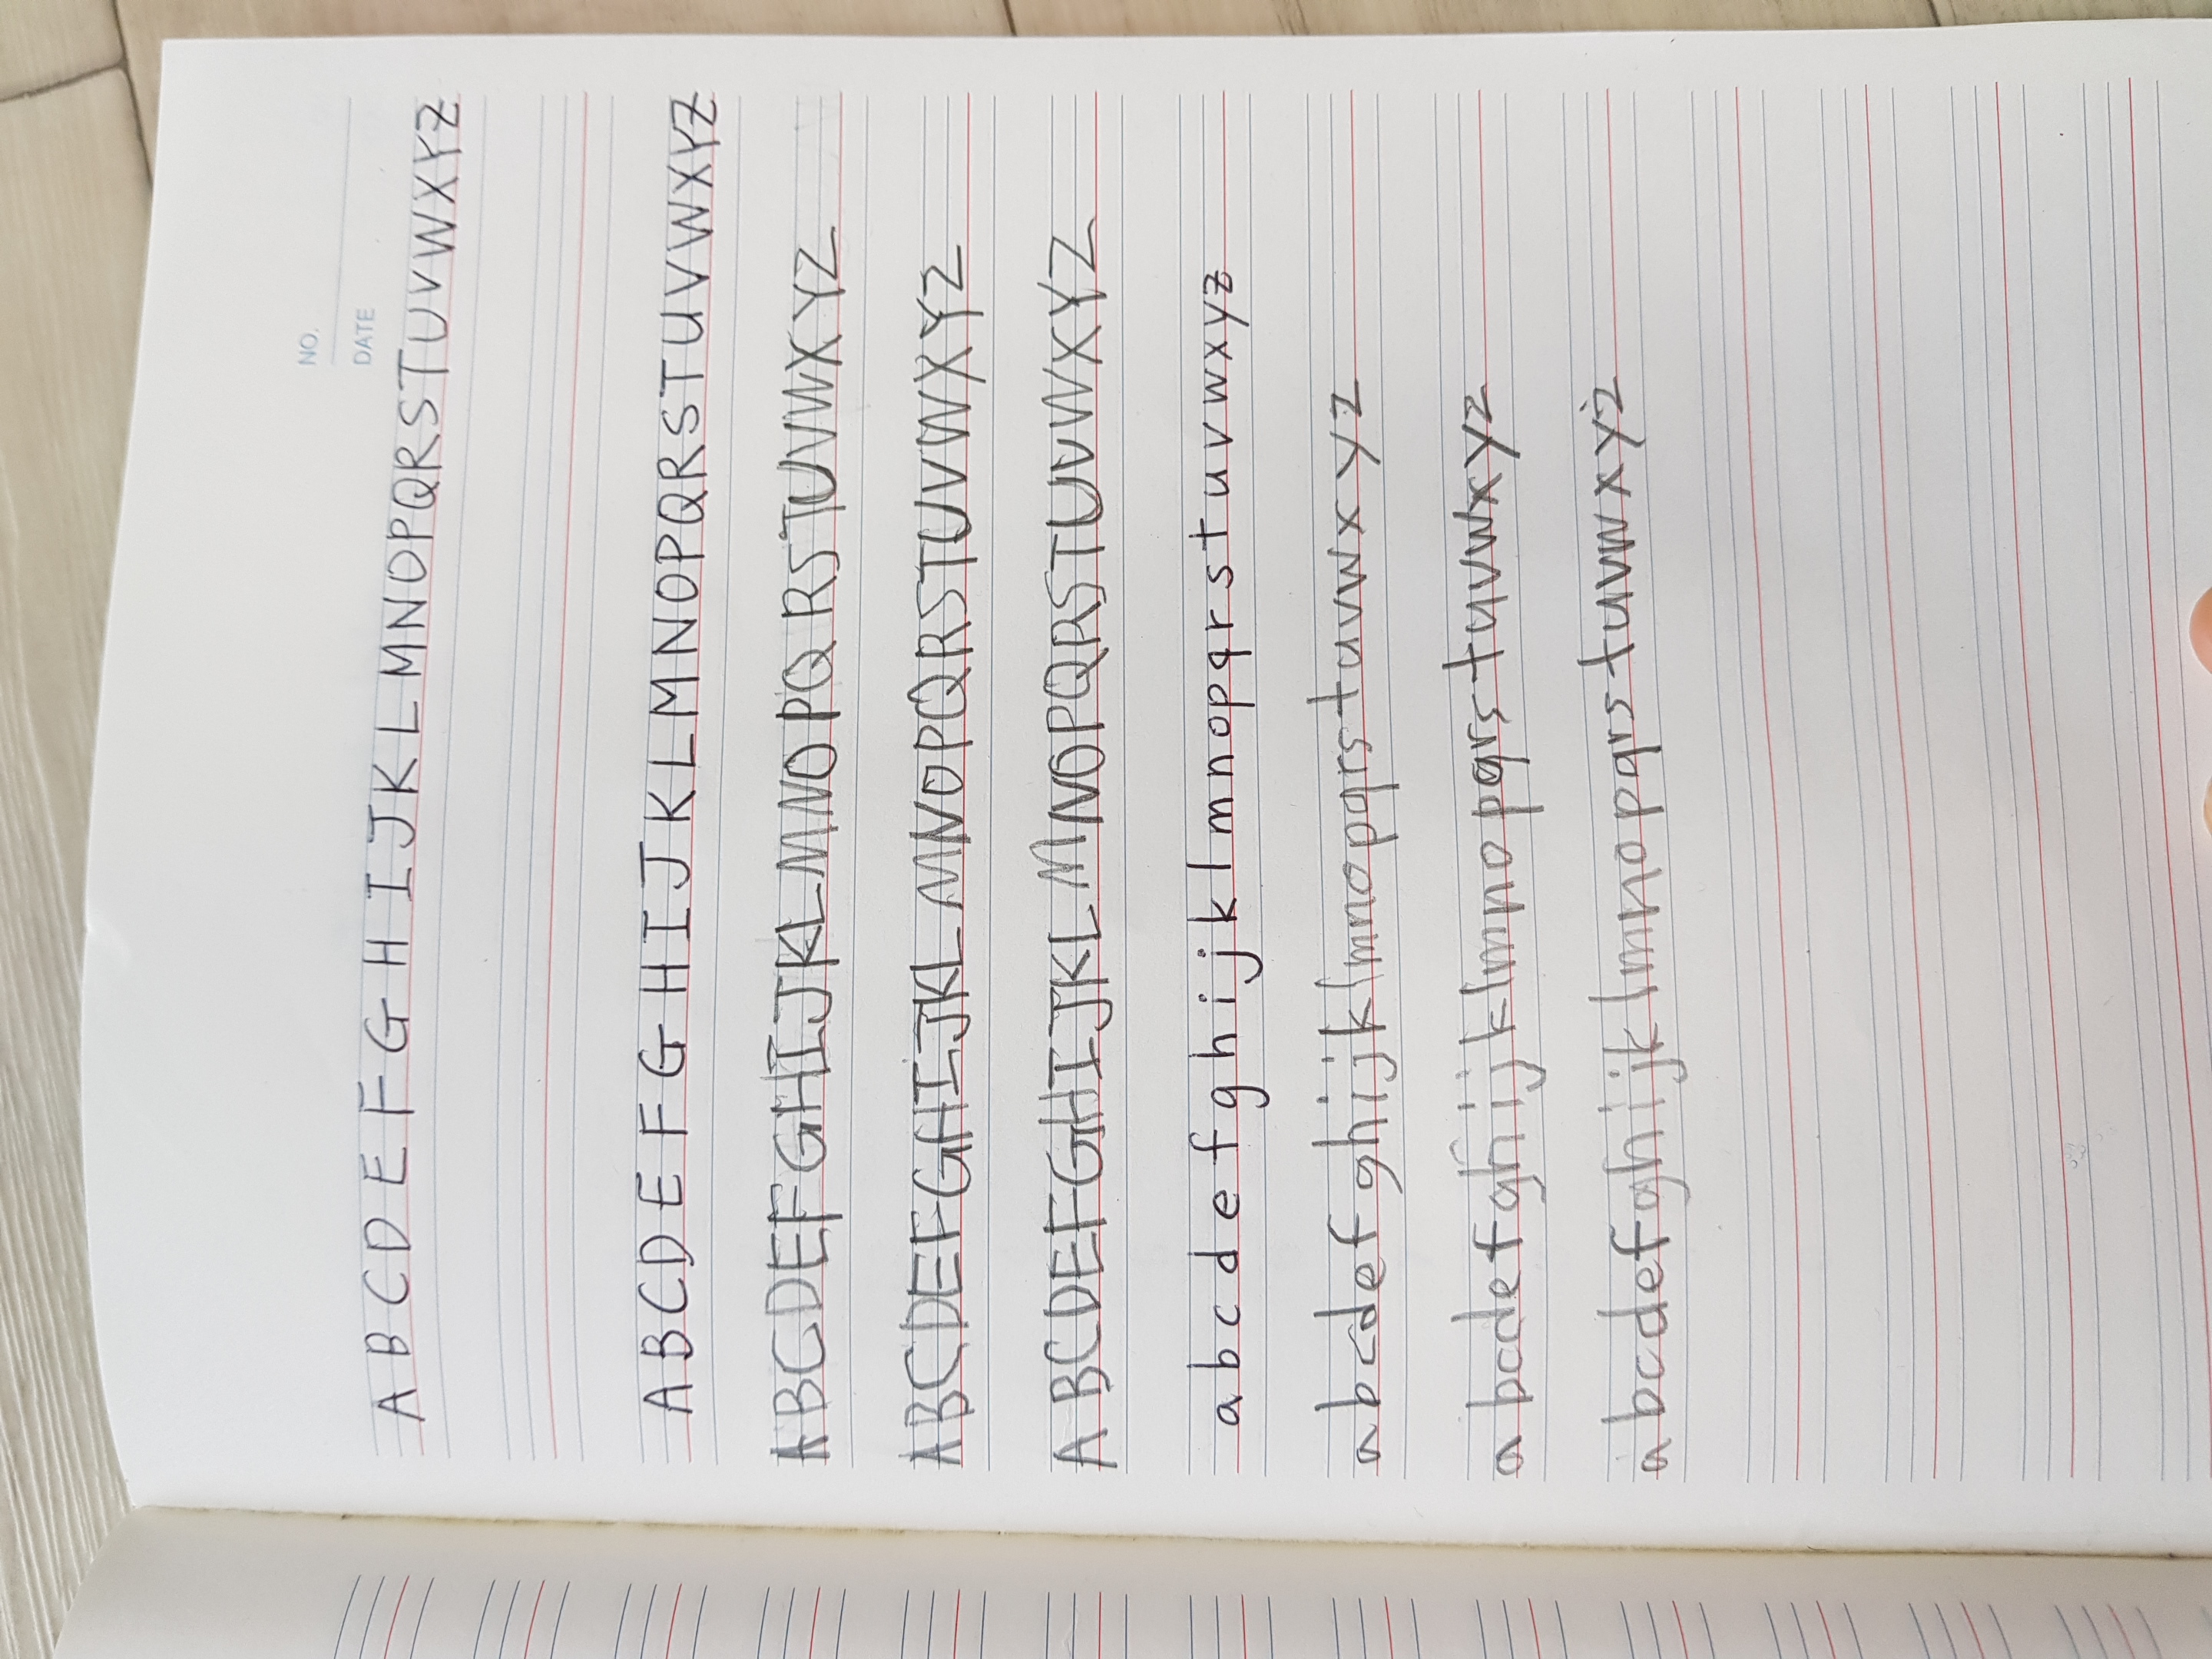 NO.
DATE
A B C D E F G H I J K L M N O P Q R S T U V W X Y Z
A B C D E F G H I J K L M N O P Q R S T U V W X Y Z
A B C D E F G H I J K L M N O P Q R S T U V W X Y Z
A B C D E F G H I J K L M N O P Q R S T U V W X Y Z
A B C D E F G H I J K L M N O P Q R S T U V W X Y Z
a b c d e f g h i j k l m n o p q r s t u v w x y z
a b c d e f g h i j k l m n o p q r s t u v w x y z
a b c d e f g h i j k l m n o p q r s t u v w x y z
a b c d e f g h i j k l m n o p q r s t u v w x y z